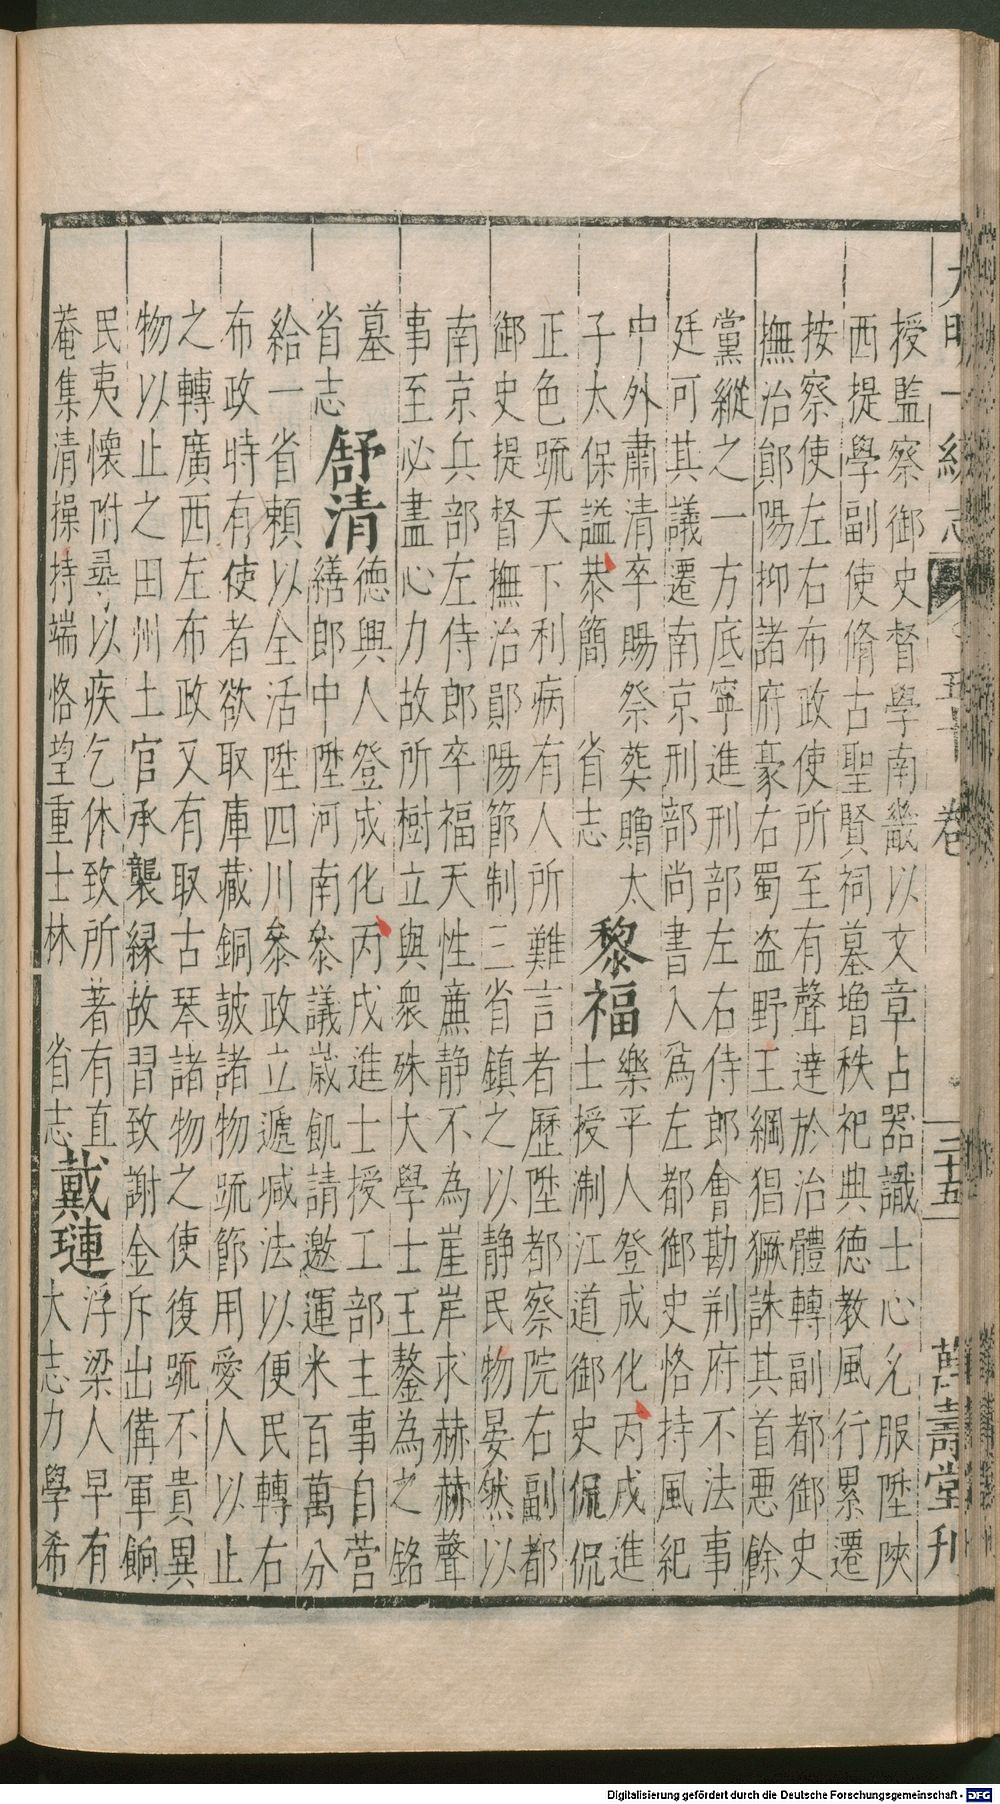 大明一統志 卷五十 三十五 萬壽堂刋
授監察御史督學南畿以文章占器識士心允服陞陝
西提學副使脩古聖賢祠墓增秩祀典德教風行累遷
按察使左右布政使所至有聲達於治體轉副都御史
撫治鄖陽抑諸府豪右蜀盗野王綱猖獗誅其首悪餘
黨縱之一方底寧進刑部左右侍郎會勘荆府不法事
廷可其議遷南京刑部尚書入爲左都御史恪持風紀
中外肅清卒賜祭葬贈太
子太保謚恭簡 省志
黎福
樂平人登成化丙戌進
士授淛江道御史侃侃
正色䟽天下利病有人所難言者歷陞都察院右副都
御史提督撫治鄖陽節制三省鎮之以静民物晏然以
南京兵部左侍郎卒福天性亷静不為崖岸求赫赫聲
事至必盡心力故所樹立與衆殊大學士王鏊為之銘
墓
省志
舒清
德興人登成化丙戌進士授工部主事自營
繕郎中陞河南叅議歲飢請邀運米百萬分
給一省賴以全活陞四川叅政立遞减法以便民轉右
布政時有使者欲取庫藏銅皷諸物䟽節用愛人以止
之轉廣西左布政又有取古琴諸物之使復䟽不貴異
物以止之田州土官承襲縁故習致謝金斥出備軍餉
民夷懷附尋以疾乞休致所著有直
菴集清操持端恪望重士林 省志
戴璉
浮梁人早有
大志力學希
Digitalisierung gefördert durch die Deutsche Forschungsgemeinschaft - DFG